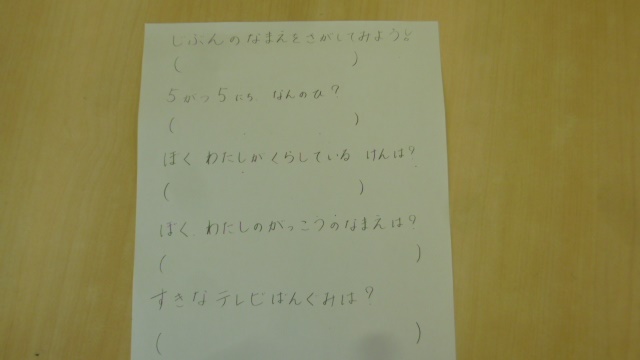 じぶんのなまえをさがしてみよう!
(　　　　　)
5がつ5にち なんのひ?
(　　　　　)
ぼく わたしがくらしている けんは?
(　　　　　)
ぼく、わたしのがっこうのなまえは?
(　　　　　)
すきなテレビばんぐみは?
(　　　　　)